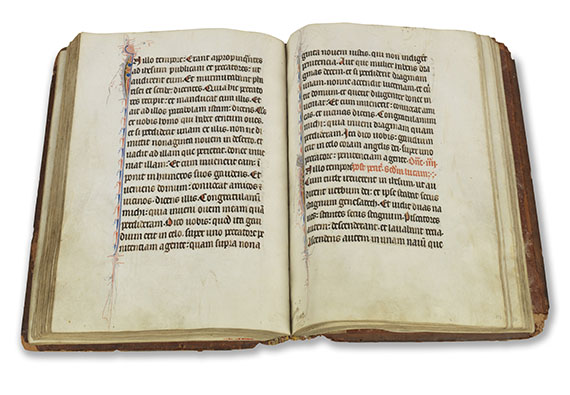 In illo tempore: Erant appropinquantes
ad ihesum publicani et peccatores: ut
audirent illum. Et murmurabant pha
risei et scribe: dicentes. Quia hic peccato
res recipit: et manducat cum illis. Et
ait ad illos parabolam istam: dicens. Quis
ex uobis homo qui habet centum oues:
et si perdiderit unam ex illis: non ne di
mittit nonaginta nouem in deserto: et
uadit ad illam que perierat: donec inue
niat illam: Et cum inuenerit eam: im
ponit in humeros suos gaudens. Et
ueniens domum: conuocat amicos et
uicinos: dicens illis. Congratulamini
michi: quia inueni ouem meam que
perierat. Dico uobis: quod ita gau
dium erit in celo: super uno peccatore pe
nitenciam agente: quam supra nona
ginta nouem iustis: qui non indigent
penitencia. Aut que mulier habens dra
gmas decem: et si perdiderit dragmam
unam: nonne accendit lucernam: et euertit
domum et querit diligenter donec in
ueniat. Et cum inuenerit: conuocat
amicas et uicinas dicens. Congratulamini
michi: quia inueni dragmam quam
perdideram. Ita dico uobis: gaudium
erit in celo coram angelis dei: super uno
peccatore: penitenciam agente. Dnica iiii
In illo tempore: post pent. scdm lucam:
Cum turbe irruerent in ihesum: ut au
dirent uerbum dei: et ipse stabat secus
stagnum genesareth. Et uidit duas na
ues: stantes secus stagnum. Piscatores
autem descenderant: et lauabant recia.
Ascendens autem in unam nauim que